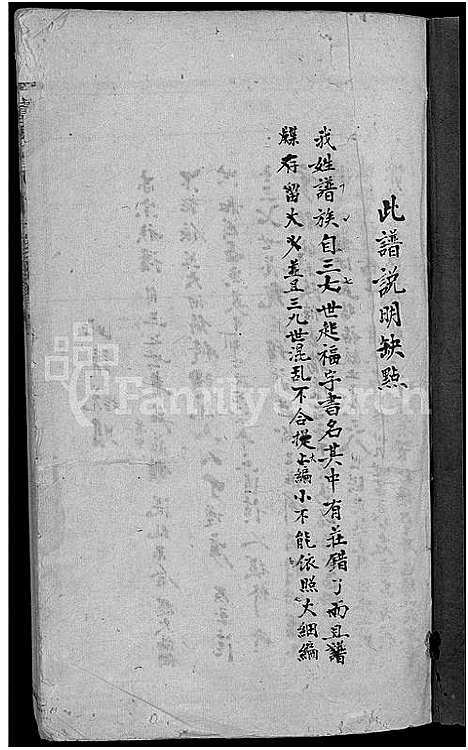 此譜説明缺點
我姓譜族自三七世起福字書名其中有莊錯了而且譜
牒存留大火並且三九世混乱不合從上編小不能依照大綱編
FamilySearch